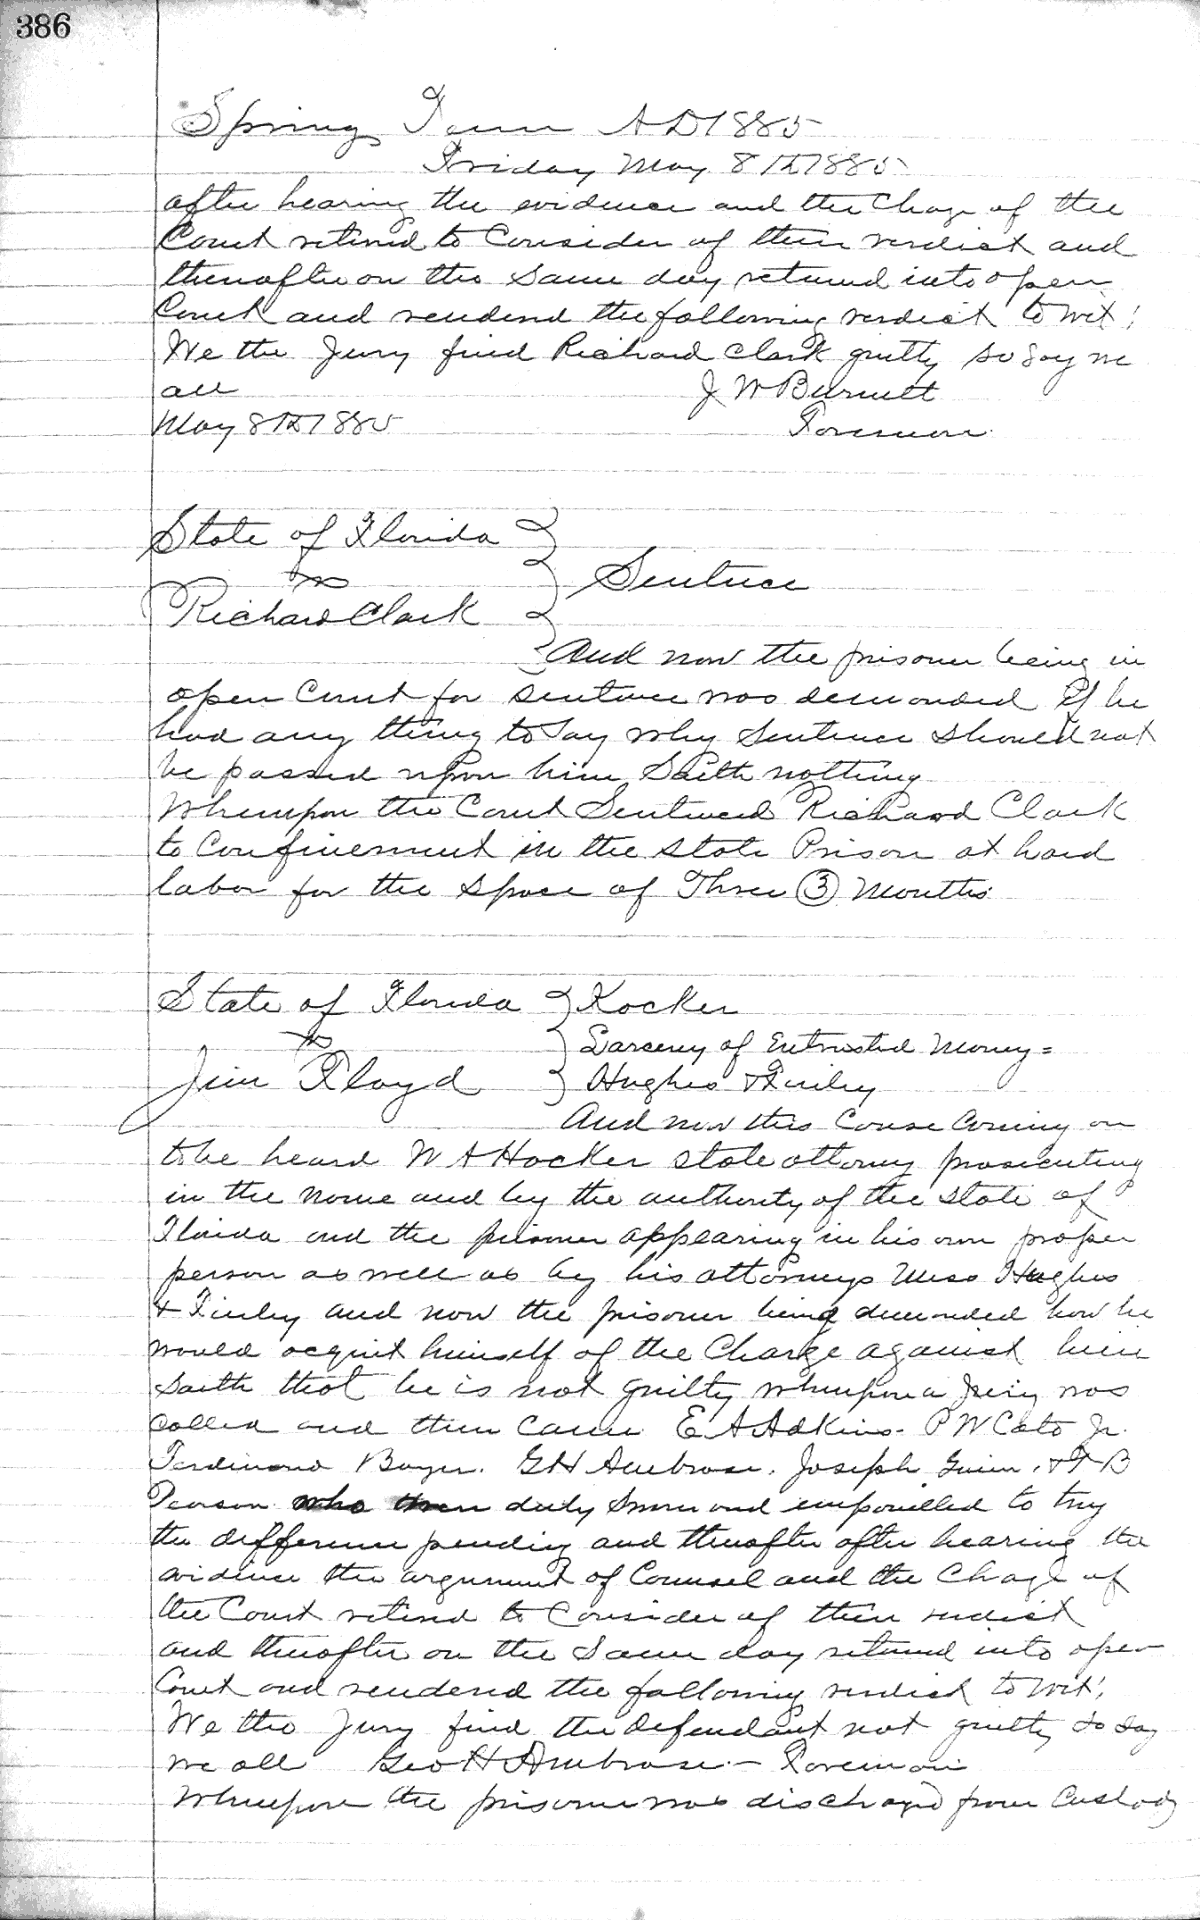 386
Spring Term AD 1885
Friday May 8th 1885
after hearing the evidence and the Charge of the
Court retired to Consider of their verdict and
thereafter on the same day returned into open
Court and rendered the following verdict to wit!
We the Jury find Richard Clark guilty so say we
all J W Burnett
May 8th 1885 Foreman
State of Florida
vs Sentence
Richard Clark
And now the prisoner being in
open Court for sentence was demanded if he
had any thing to say why Sentence should not
be passed upon him Saith nothing
Whereupon the Court Sentenced Richard Clark
to Confinement in the State Prison at hard
labor for the space of Three (3) Months
State of Florida Hocker
vs Larceny of Entrusted Money =
Jim Floyd Hughes & Finley
And now this Cause Coming on
to be heard W A Hocker state attorney prosecuting
in the name and by the authority of the state of
Florida and the prisoner appearing in his own proper
person as well as by his attorneys Mess Hughes
& Finley and now the prisoner being demanded how he
would acquit himself of the Charge against him
Saith that he is not guilty whereupon a Jury was
called and then came E A Adkins. P W Cato Jr.
Ferdinand Boyer. G H Ambrose. Joseph Guinn. & F B
Pearson who then duly sworn and empanelled to try
the difference pending and thereafter after hearing the
evidence the argument of Counsel and the Charge of
the Court retired to Consider of their verdict
and thereafter on the same day returned into open
Court and rendered the following verdict to wit!
We the Jury find the defendant not guilty so say
we all Geo H Ambrose - Foreman
Whereupon the prisoner was discharged from Custody